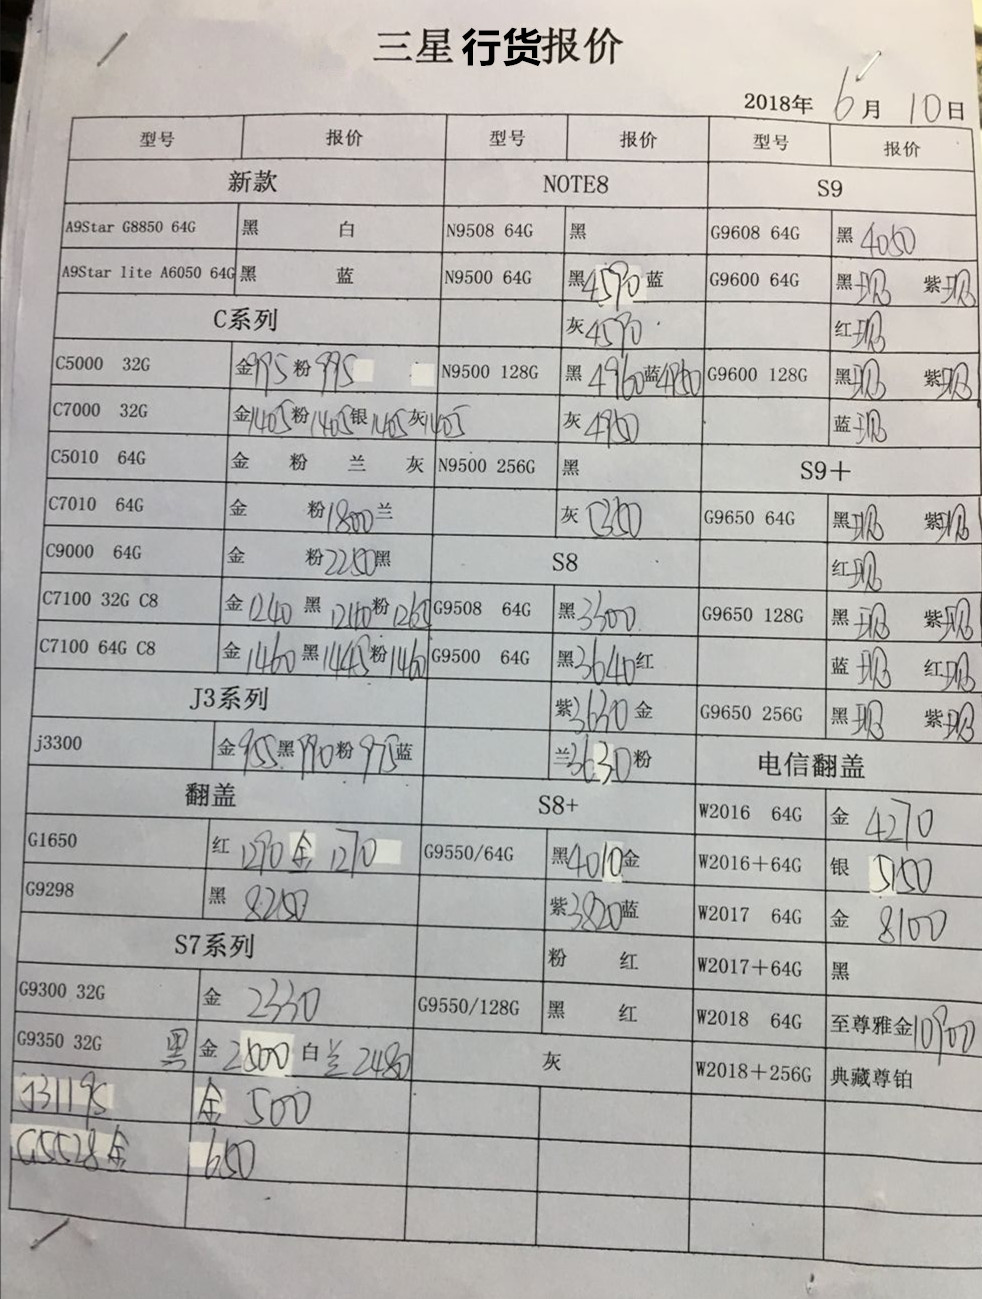 三星行货报价
2018年 6月 10日
型号 报价 型号 报价 型号 报价
新款 NOTE8 S9
A9Star G8850 64G 黑 白 N9508 64G 黑 G9608 64G 黑 4050
A9Star lite A6050 64G 黑 蓝 N9500 64G 黑 4590 蓝 G9600 64G 黑现 紫现
C系列 灰 4590 红现
C5000 32G 金 975 粉 995 N9500 128G 黑 4960 蓝 4950 G9600 128G 黑现 紫现
C7000 32G 金 1405 粉 1405 银 1405 灰 1405 灰 4950 蓝现
C5010 64G 金 粉 兰 灰 N9500 256G 黑 S9＋
C7010 64G 金 粉 1800 兰 灰 5350 G9650 64G 黑现 紫现
C9000 64G 金 粉 2250 黑 S8 红现
C7100 32G C8 金 1240 黑 1240 粉 1265 G9508 64G 黑 3500 G9650 128G 黑现 紫现
C7100 64G C8 金 1460 黑 1445 粉 1460 G9500 64G 黑 3640 红 蓝现 红现
J3系列 紫 3630 金 G9650 256G 黑现 紫现
j3300 金 955 黑 990 粉 975 蓝 兰 3630 粉 电信翻盖
翻盖 S8+ W2016 64G 金 4270
G1650 红 1290 金 1270 G9550/64G 黑 4010 金 W2016＋64G 银 5150
G9298 黑 8250 紫 3820 蓝 W2017 64G 金 8100
S7系列 粉 红 W2017＋64G 黑
G9300 32G 金 2330 G9550/128G 黑 红 W2018 64G 至尊雅金 10900
G9350 32G 黑 金 2500 白 兰 2480 灰 W2018＋256G 典藏尊铂
J3119S 金 500
G5528金 650